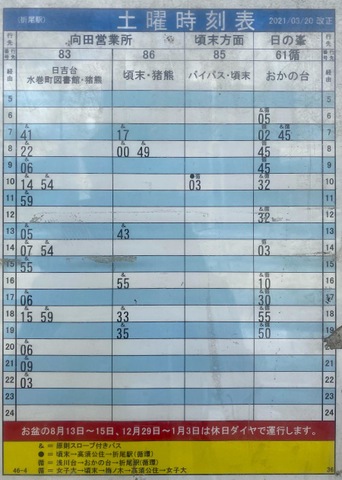 (折尾駅) 土曜時刻表 2021/03/20 改正
行先 向田営業所 頃末方面 日の峯 行先
番号 83 86 85 61循 番号
経由 日吉台 水巻町図書館・猪熊 頃末・猪熊 バイパス・頃末 おかの台 経由
5 5
6 05 6
7 41 17 02 45 7
8 22 00 49 45 8
9 06 45 9
10 14 54 03 32 10
11 59 11
12 32 12
13 05 43 13
14 07 54 03 14
15 55 15
16 55 10 16
17 06 30 17
18 15 59 33 55 18
19 35 50 19
20 06 20
21 09 21
22 03 22
23 23
24 24
お盆の8月13日~15日、12月29日~1月3日は休日ダイヤで運行します。
& = 原則スロープ付きバス
● = 頃末→高須公住→折尾駅(循環)
= 浅川台→おかの台→折尾駅(循環)
46-4 = 女子大→頃末→梅ノ木→高須公住→女子大 36